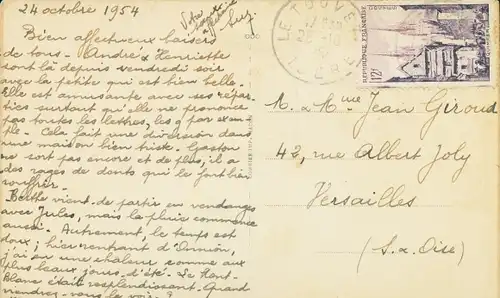 24 octobre 1954
Votre
Suz.
Bien affectueux baisers
de tous - André & Henriette
sont là depuis vendredi soir
avec la petite qui est bien belle.
Elle est amusante avec ses répar-
ties surtout qu'elle ne prononce
pas toutes les lettres, les q par exem-
ple. Cela fait une diversion dans
une maison bien triste. Gaston
ne sort pas encore et de plus, il a
des rages de dents qui le font bien
souffrir.
Berthe vient de partir en vendanges
avec Jules, mais la pluie commence
aussi. Autrement, le temps est
doux ; hier rentrant d'
j'ai eu une chaleur comme aux
plus beaux jours d'été. Le Mont-
Blanc était resplendissant. Quand
viendrez-vous le voir ?
LE TOUVET
ISERE
REPUBLIQUE FRANÇAISE
12F
M. & Mme Jean Giroud
43, rue Albert Joly
Versailles
(S. & Oise)